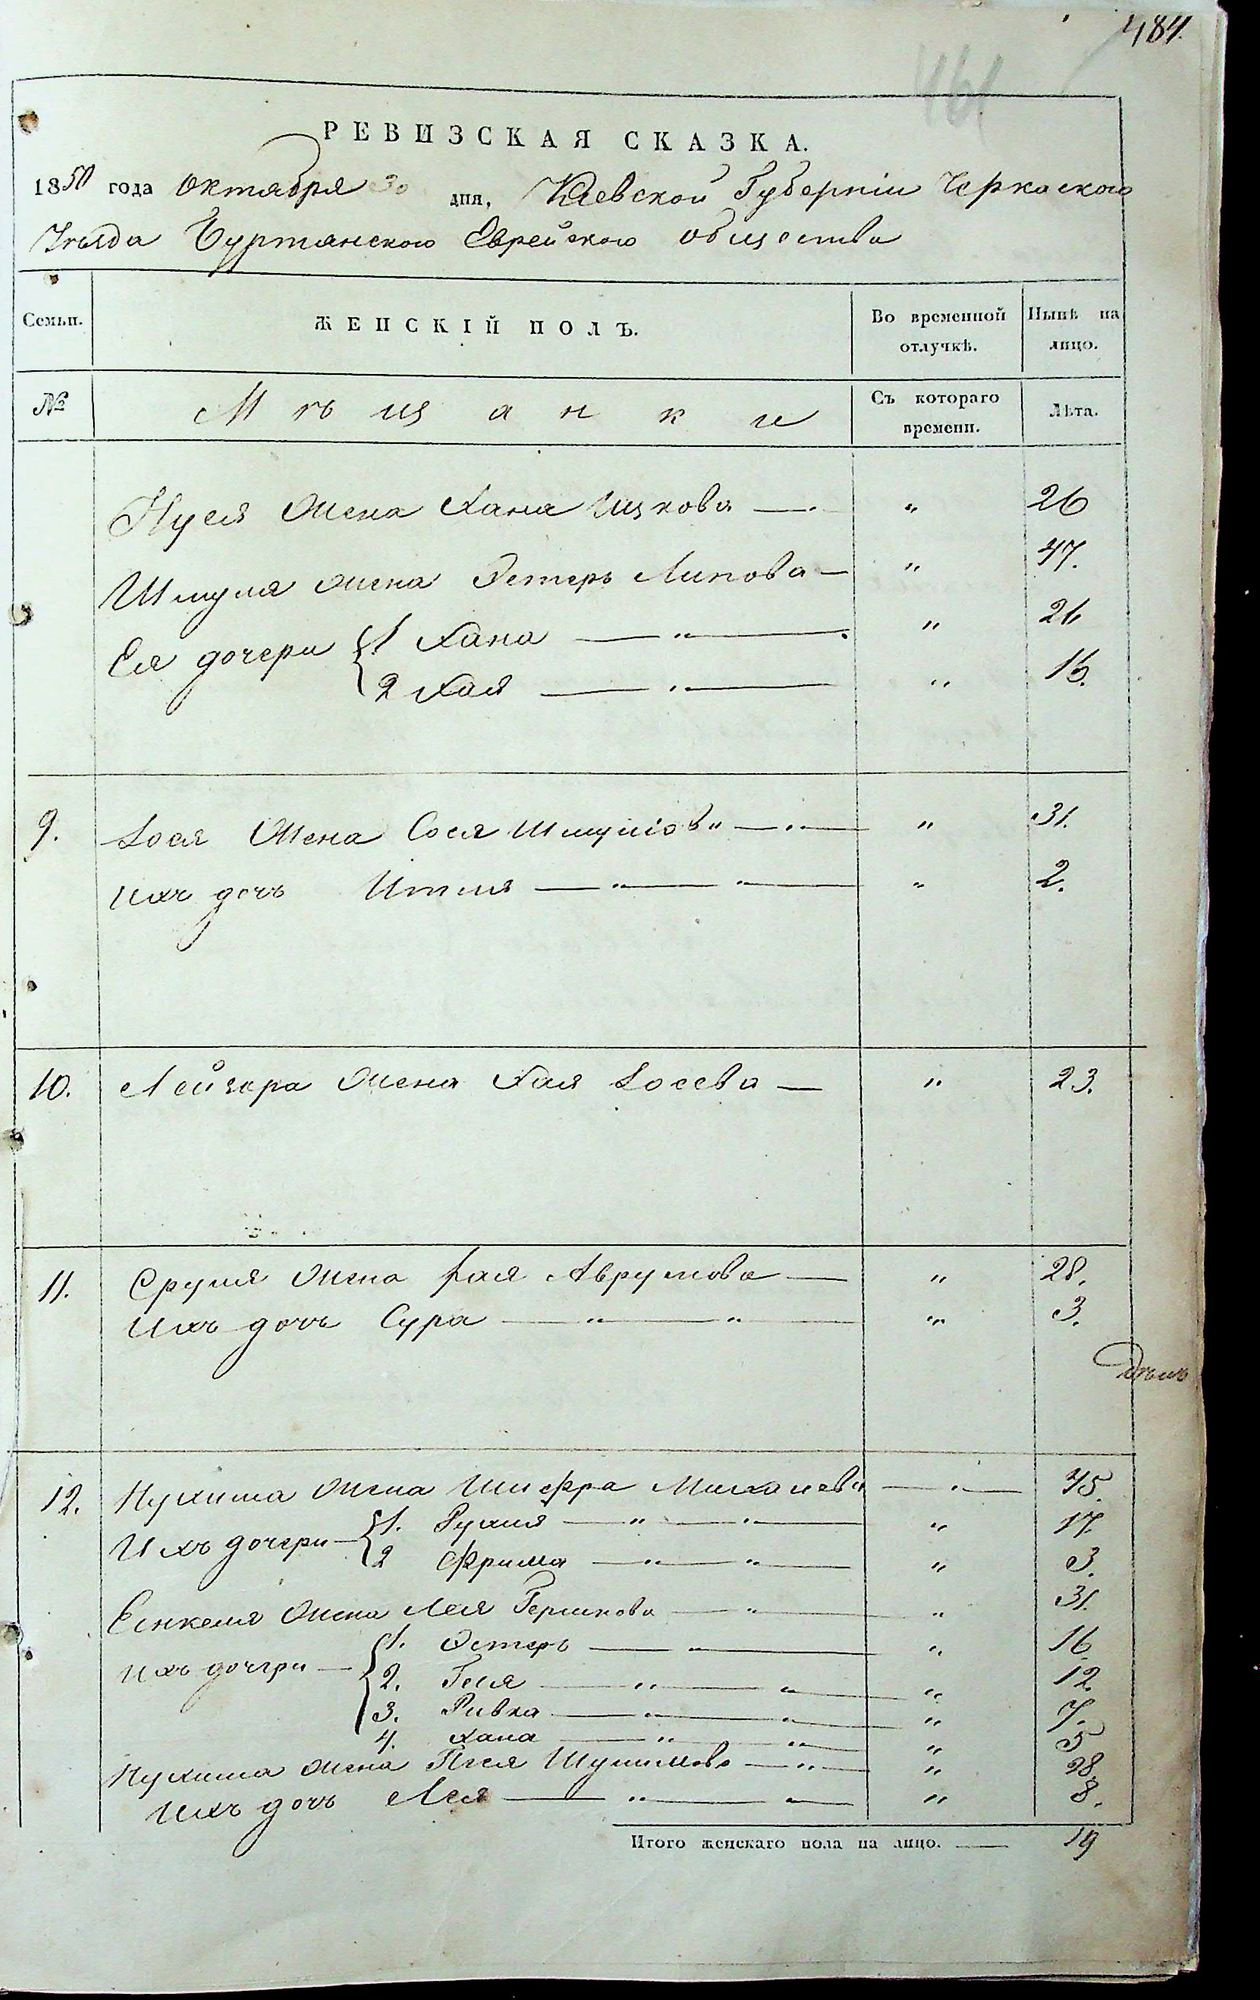 484.
461
РЕВИЗСКАЯ СКАЗКА.
1850 года Октября 30 дня, Киевской Губерніи Черкаского
Уѣзда Еврейского общества
Семьи. ЖЕНСКІЙ ПОЛЪ. Во временной отлучкѣ. Нынѣ на лицо.
№ Мѣщанки Съ котораго времени. Лѣта.
Нуся жена Хана Ицкова — " 26
Шмуля жена Эстеръ Липова — " 47.
Ея дочери 1 Хана — " — " 26
2 Хая — " — " 16.
9. Іося жена Сося Шмуліова — " — " 31.
Ихъ дочь Итля — " — " — " 2.
10. Лейзера жена Хая Іосева — " 23.
11. Сруля жена Хая Аврумова — " 28.
Ихъ дочь Сура — " — " — " 3.
12. Нухима жена Шифра Михалева — " — 45.
Ихъ дочери 1. Рухля — " — " — " 17.
2 Фрима — " — " — " 3.
Еинкеля жена Лея Гершкова — " — " 31.
Ихъ дочери 1. Эстеръ — " — " 16.
2. Геня — " — " — " 12.
3. Ривка — " — " — " 7.
4. Хана — " — " — " 5
Нухима жена Песя Шулимова — " — " 28.
Ихъ дочь Лея — " — " — " 8.
Итого женскаго пола на лицо. — 19